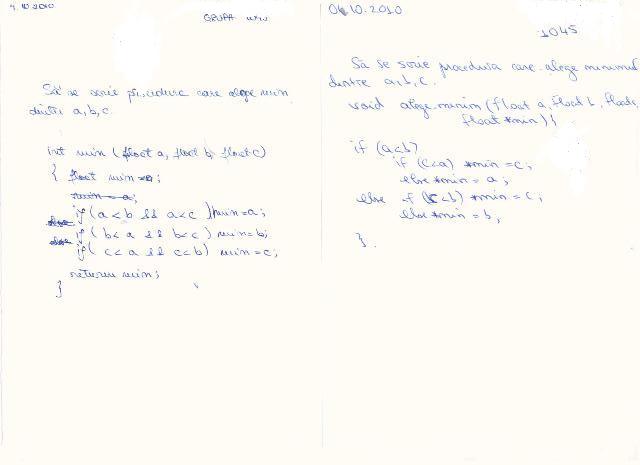 4.10.2010
GRUPA
Să se scrie procedura care alege min
dintre a, b, c.
int min (float a, float b, float c)
{ float min=a;
min = a;
if (a<b && a<c) min=a;
else if (b<a && b<c) min=b;
else if (c<a && c<b) min=c;
return min;
}
04.10.2010
1045
Să se scrie procedura care alege minimul
dintre a, b, c.
void alege_minim (float a, float b, float c,
float *min){
if (a<b)
if (c<a) *min=c;
else *min = a;
else if (c<b) *min=c;
else *min = b;
}